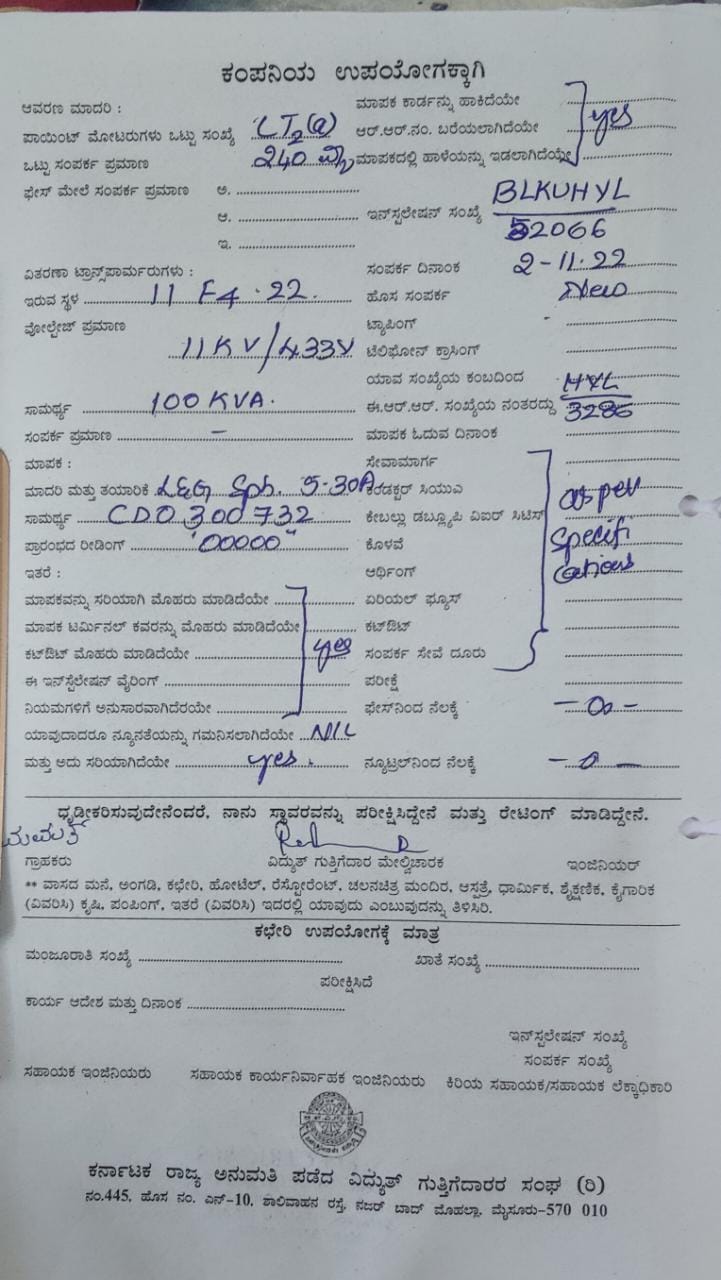 ಕಂಪನಿಯ ಉಪಯೋಗಕ್ಕಾಗಿ
ಆವರಣ ಮಾದರಿ : ಮಾಪಕ ಕಾರ್ಡನ್ನು ಹಾಕಿದೆಯೇ
ಪಾಯಿಂಟ್ ಮೋಟರುಗಳು ಒಟ್ಟು ಸಂಖ್ಯೆ LT2(a) ಆರ್.ಆರ್.ನಂ. ಬರೆಯಲಾಗಿದೆಯೇ yes
ಒಟ್ಟು ಸಂಪರ್ಕ ಪ್ರಮಾಣ 240 ಮಾಪಕದಲ್ಲಿ ಹಾಳೆಯನ್ನು ಇಡಲಾಗಿದೆಯೇ
ಫೇಸ್ ಮೇಲೆ ಸಂಪರ್ಕ ಪ್ರಮಾಣ ಅ.
ಆ. ಇನ್‌ಸ್ಟಲೇಷನ್ ಸಂಖ್ಯೆ BLKUHYL
ಇ. 52066
ವಿತರಣಾ ಟ್ರಾನ್ಸ್‌ಪಾರ್ಮರುಗಳು : ಸಂಪರ್ಕ ದಿನಾಂಕ 2-11.22
ಇರುವ ಸ್ಥಳ 11 F4.22. ಹೊಸ ಸಂಪರ್ಕ New
ವೋಲ್ಟೇಜ್ ಪ್ರಮಾಣ ಟ್ಯಾಪಿಂಗ್ -
11KV/433V ಟೆಲಿಫೋನ್ ಕ್ರಾಸಿಂಗ್
ಯಾವ ಸಂಖ್ಯೆಯ ಕಂಬದಿಂದ HYL
ಸಾಮರ್ಥ್ಯ 100 KVA. ಈ.ಆರ್.ಆರ್. ಸಂಖ್ಯೆಯ ನಂತರದ್ದು 3286
ಸಂಪರ್ಕ ಪ್ರಮಾಣ - ಮಾಪಕ ಓದುವ ದಿನಾಂಕ
ಮಾಪಕ : ಸೇವಾಮಾರ್ಗ
ಮಾದರಿ ಮತ್ತು ತಯಾರಿಕೆ L&G Sph. 5-30A ಕಂಡಕ್ಟರ್ ಸಿಯುವಿ as per
ಸಾಮರ್ಥ್ಯ CDO 300732 ಕೇಬಲ್ಲು ಡಬ್ಲ್ಯೂಪಿ ವಿಐರ್ ಸಿಟಿಸ್
ಪ್ರಾರಂಭದ ರೀಡಿಂಗ್ "00000" ಕೊಳವೆ Specifi
ಇತರೆ : ಆರ್ಥಿಂಗ್ cations
ಮಾಪಕವನ್ನು ಸರಿಯಾಗಿ ಮೊಹರು ಮಾಡಿದೆಯೇ ಏರಿಯಲ್ ಫ್ಯೂಸ್
ಮಾಪಕ ಟರ್ಮಿನಲ್ ಕವರನ್ನು ಮೊಹರು ಮಾಡಿದೆಯೇ ಕಟ್‌ಔಟ್
ಕಟ್‌ಔಟ್ ಮೊಹರು ಮಾಡಿದೆಯೇ yes ಸಂಪರ್ಕ ಸೇವೆ ದೂರು
ಈ ಇನ್‌ಸ್ಟೆಲೇಷನ್ ವೈರಿಂಗ್ ಪರೀಕ್ಷೆ
ನಿಯಮಗಳಿಗೆ ಅನುಸಾರವಾಗಿದೆರಯೇ ಫೇಸ್‌ನಿಂದ ನೆಲಕ್ಕೆ -0-
ಯಾವುದಾದರೂ ನ್ಯೂನತೆಯನ್ನು ಗಮನಿಸಲಾಗಿದೆಯೇ NIL
ಮತ್ತು ಅದು ಸರಿಯಾಗಿದೆಯೇ yes. ನ್ಯೂಟ್ರಲ್‌ನಿಂದ ನೆಲಕ್ಕೆ -0-
ಧೃಡೀಕರಿಸುವುದೇನೆಂದರೆ, ನಾನು ಸ್ಥಾವರವನ್ನು ಪರೀಕ್ಷಿಸಿದ್ದೇನೆ ಮತ್ತು ರೇಟಿಂಗ್ ಮಾಡಿದ್ದೇನೆ.
ಗ್ರಾಹಕರು ವಿದ್ಯುತ್ ಗುತ್ತಿಗೆದಾರ ಮೇಲ್ವಿಚಾರಕ ಇಂಜಿನಿಯರ್
** ವಾಸದ ಮನೆ, ಅಂಗಡಿ, ಕಛೇರಿ, ಹೋಟೆಲ್, ರೆಸ್ಟೋರೆಂಟ್, ಚಲನಚಿತ್ರ ಮಂದಿರ, ಆಸ್ಪತ್ರೆ, ಧಾರ್ಮಿಕ, ಶೈಕ್ಷಣಿಕ, ಕೈಗಾರಿಕ
(ವಿವರಿಸಿ) ಕೃಷಿ, ಪಂಪಿಂಗ್, ಇತರೆ (ವಿವರಿಸಿ) ಇದರಲ್ಲಿ ಯಾವುದು ಎಂಬುವುದನ್ನು ತಿಳಿಸಿರಿ.
ಕಛೇರಿ ಉಪಯೋಗಕ್ಕೆ ಮಾತ್ರ
ಮಂಜೂರಾತಿ ಸಂಖ್ಯೆ ಖಾತೆ ಸಂಖ್ಯೆ
ಪರೀಕ್ಷಿಸಿದೆ
ಕಾರ್ಯ ಆದೇಶ ಮತ್ತು ದಿನಾಂಕ
ಇನ್‌ಸ್ಟಲೇಷನ್ ಸಂಖ್ಯೆ
ಸಂಪರ್ಕ ಸಂಖ್ಯೆ
ಸಹಾಯಕ ಇಂಜಿನಿಯರು ಸಹಾಯಕ ಕಾರ್ಯನಿರ್ವಾಹಕ ಇಂಜಿನಿಯರು ಕಿರಿಯ ಸಹಾಯಕ/ಸಹಾಯಕ ಲೆಕ್ಕಾಧಿಕಾರಿ
ಕರ್ನಾಟಕ ರಾಜ್ಯ ಅನುಮತಿ ಪಡೆದ ವಿದ್ಯುತ್ ಗುತ್ತಿಗೆದಾರರ ಸಂಘ (ರಿ)
ನಂ.445, ಹೊಸ ನಂ. ಎನ್-10, ಶಾಲಿವಾಹನ ರಸ್ತೆ, ನಜರ್ ಬಾದ್ ಮೊಹಲ್ಲಾ, ಮೈಸೂರು-570 010